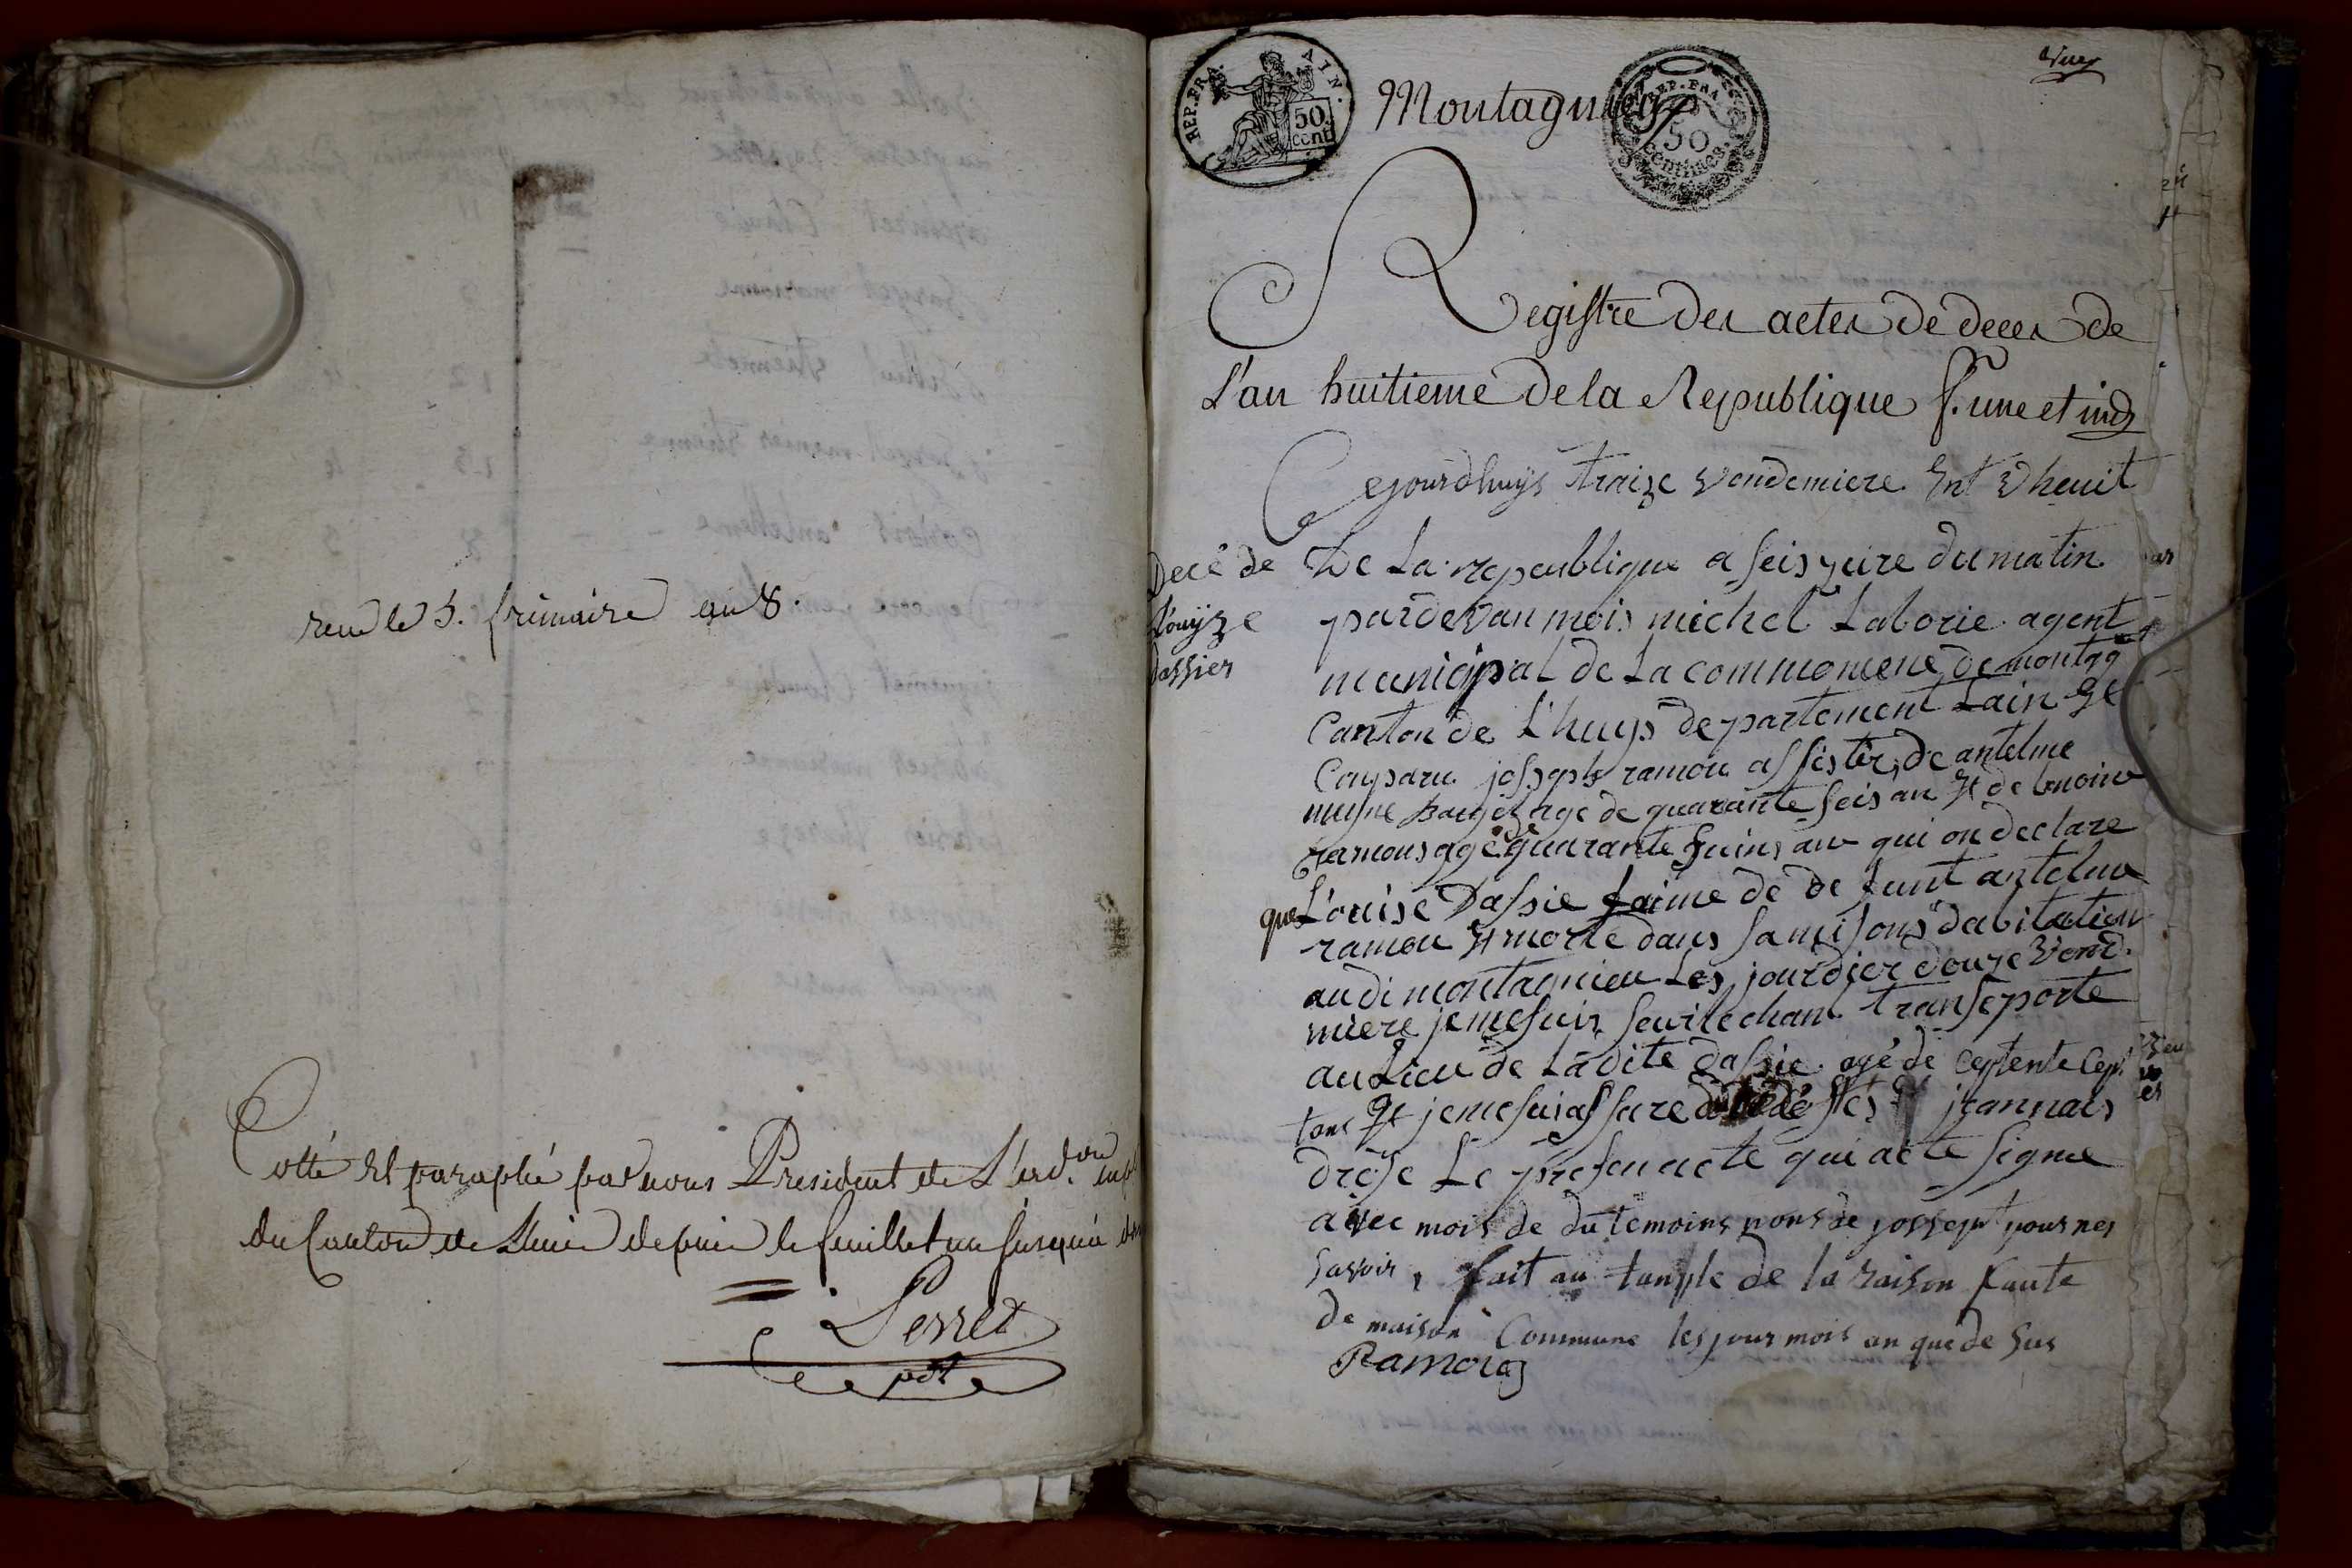 rendu le 5. frimaire an 8.
Cotté Et paraphé par nous President de L'ad.on
du Canton de Lhuis depuis le feuillet un jusqu'à
Perret
pdt
REP. FRA.
AIN.
50
cent
Montagnieu
REP. FRA.
50
centimes
Registre des actes de deces de
L'an huitieme de la Republique f. une et ind
Cejourdhuys traize vendemiere Ent Vheuit
Decé de
Louyze
dassier
De La republique a seis yeire du matin
pardevan mois michel Laborie agent
municipal de La commomene de montag
Canton de L'huys departement Lain Et
Conparu joseph ramou assister de antelme
mugne age de quarante seis an Et de
ramous agé de quarante an qui on declare
que Louise Dassie faime de de funt antelme
ramou Et morte dans sa misons dabitation
au di montagnieu Les jourdier douze Vend
miere jemesuis sur lechant transeporte
au Lieu de Ladite dassie agé de ceptente cept
tans Et jemesuis assure jeannais
drése Le presen acte qui acte signee
avec mois de du temoins nons de jossept pour nes
savoir, fait au tanple de la raison faute
de maison Commune les jour mois an que de sus
Ramous